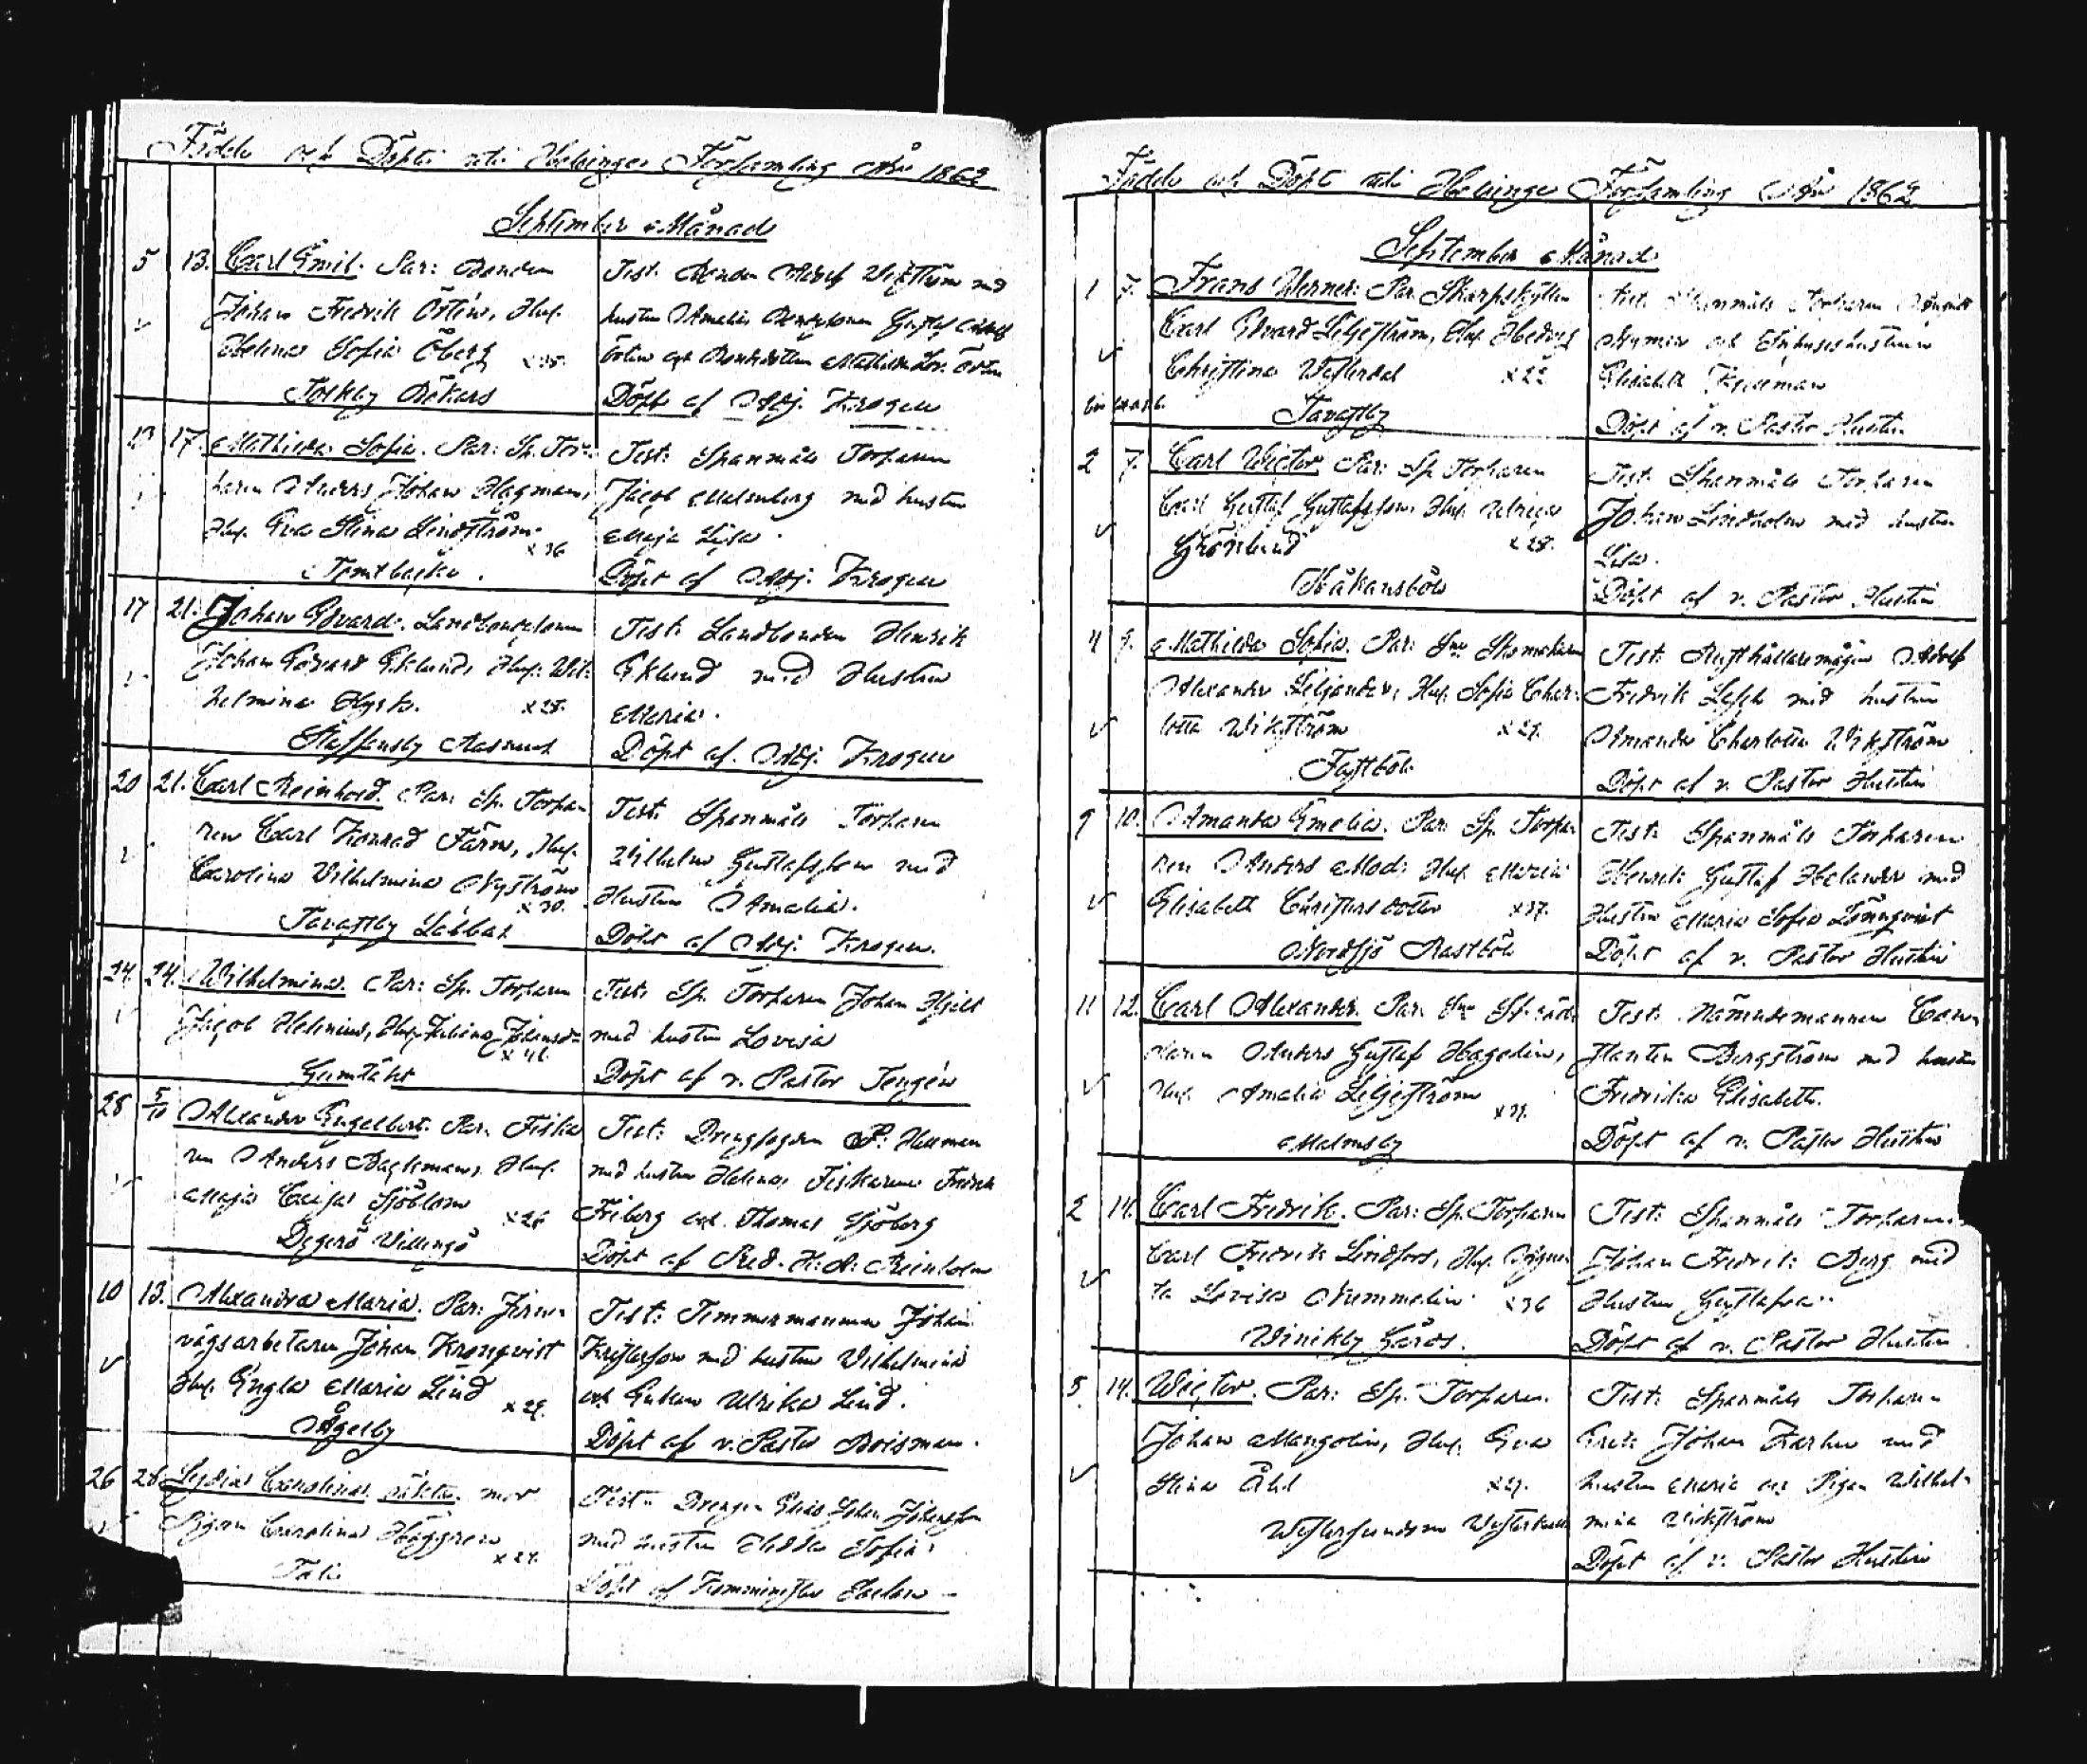 Födde och Döpte uti Helsinge Församling År 1862
September Månad
5 13. Carl Emil. Par: Bonden
Johan Fredrik Östen, Hus.
Helena Sofia Öberg x35.
Tolkby Bökars
Test: Bonden Adolf Wikström med
hustru Amalia, Bondesonen Gustaf Adolf
Östen och Bondedottren Mathilda Lov. Östen
Döpt af Adj. Krogen
13 17. Mathilda Sofia. Par: Sp. Tor-
paren Anders Johan Hagman,
Hus. Eva Stina Lindström x36
Tomtbacka.
Test: Spanmåls Torparen
Jacob Malmberg med hustru
Maja Lisa.
Döpt af Adj. Krogen
17 21. Johan Edvard. Landbondesonen
Johan Edvard Eklund, Hus. Wil-
helmina x28.
Staffansby Rasmus
Test: Landbonden Henrik
Eklund med Hustru
Maria.
Döpt af. Adj. Krogen
20 21. Carl Reinhold. Par: Sp. Torpa-
ren Carl Konrad Färm, Hus.
Carolina Vilhelmina Nyström
x30.
Tavastby Labbas
Test: Spanmåls Torparen
Wilhelm Gustafsson med
Hustru Amalia.
Döpt af Adj. Krogen.
24. 24. Wilhelmina. Par: Sp. Torparen
Jacob Helenius, Hus. Juliana Johansd-
x 41.
Gumtäkt
Test: Sp. Torparen Johan Hjelt
med hustru Lovisa
Döpt af v. Pastor Tengén
28 5/10 Alexander Engelbert. Par. Fiska
ren Anders Backman, Hus.
Maja Caisa Sjöblom x26
Degerö Willingö
Test: Drengfogden P: Hellman
med hustru Helena, Fiskarena Fredrik
Friberg och Thomas Sjöberg
Döpt af Pred. H: A: Reinholm
10 13. Alexandra Maria. Par: Jern-
vägsarbetaren Johan Kronqvist
Hus. Engla Maria Lind x29.
Ågelby
Test: Timmermannen Johan
Kristersson med hustru Vilhelmina
och Enkan Ulrika Lind.
Döpt af v. Pastor Boisman.
26 28. Lydia Carolina. oäkta. mor
Pigan Carolina Häggren
x 27.
Tali
Test: Drengen Johan Johansson
med hustru Hedda Sofia.
Döpt af Komminister
Födde och Döpte uti Helsinge Församling År 1862
September Månad
1 7. Frans Werner. Par. Skarpskytten
Carl Edvard Liljeström, Hus. Hedvig
Christina Westerdal x22
Tavastby
Test: Spanmåls Torparen
Nyman och Inhyseshustrun
Elisabeth
Döpt af v. Pastor Hustin
2 7. Carl Wictor. Par: Sp Torparen
Carl Gustaf Gustafsson, Hus. Ulrica
Grönlund x28.
Håkansböle
Test: Spanmåls Torparen
Johan Lindholm med hustru
Lisa.
Döpt af v. Pastor Hustin
4 9. Mathilda Sofia. Par: Sne Skomakaren
Alexander Liljander, Hus. Sofia Char-
lotta Wikström x29.
Fastböle
Test: Rusthållaremågen Adolf
Fredrik med hustru
Amanda Charlotta Wikström
Döpt af v. Pastor Hustin
9 10. Amanda Emelia. Par: Sp. Torpa-
ren Anders Mod: Hus. Maria
Elisabeth Christersdotter x37.
Nordsjö Rastböle
Test: Spanmåls Torparen
Henrik Gustaf Helander med
Hustru Maria Sofia Lönnqvist
Döpt af v. Pastor Hustin
11 12. Carl Alexander. Par. Sne
Anders Gustaf Hagelin,
Hus. Amalia Liljeström x31.
Malmsby
Test: Nämndemannen Con-
stantin Bergström med hustru
Fredrika Elisabeth.
Döpt af v. Pastor Hustin
2 14. Carl Fredrik. Par: Sp. Torparen
Carl Fredrik Lindfors, Hus. Agne-
ta Lovisa Nummelin x36
Winikby Gårds.
Test: Spanmåls Torparen
Johan Fredrik Berg med
Hustru Gustafva.
Döpt af v. Pastor Hustin
5. 14. Wictor. Par: Sp. Torparen
Johan Mangolin, Hus. Eva
Stina Åhl x27.
Westersundom
Test: Spanmåls Torparen
Erik Johan Karlin med
hustru Maria och Pigan Wilhel-
mina Wikström
Döpt af v. Pastor Hustin